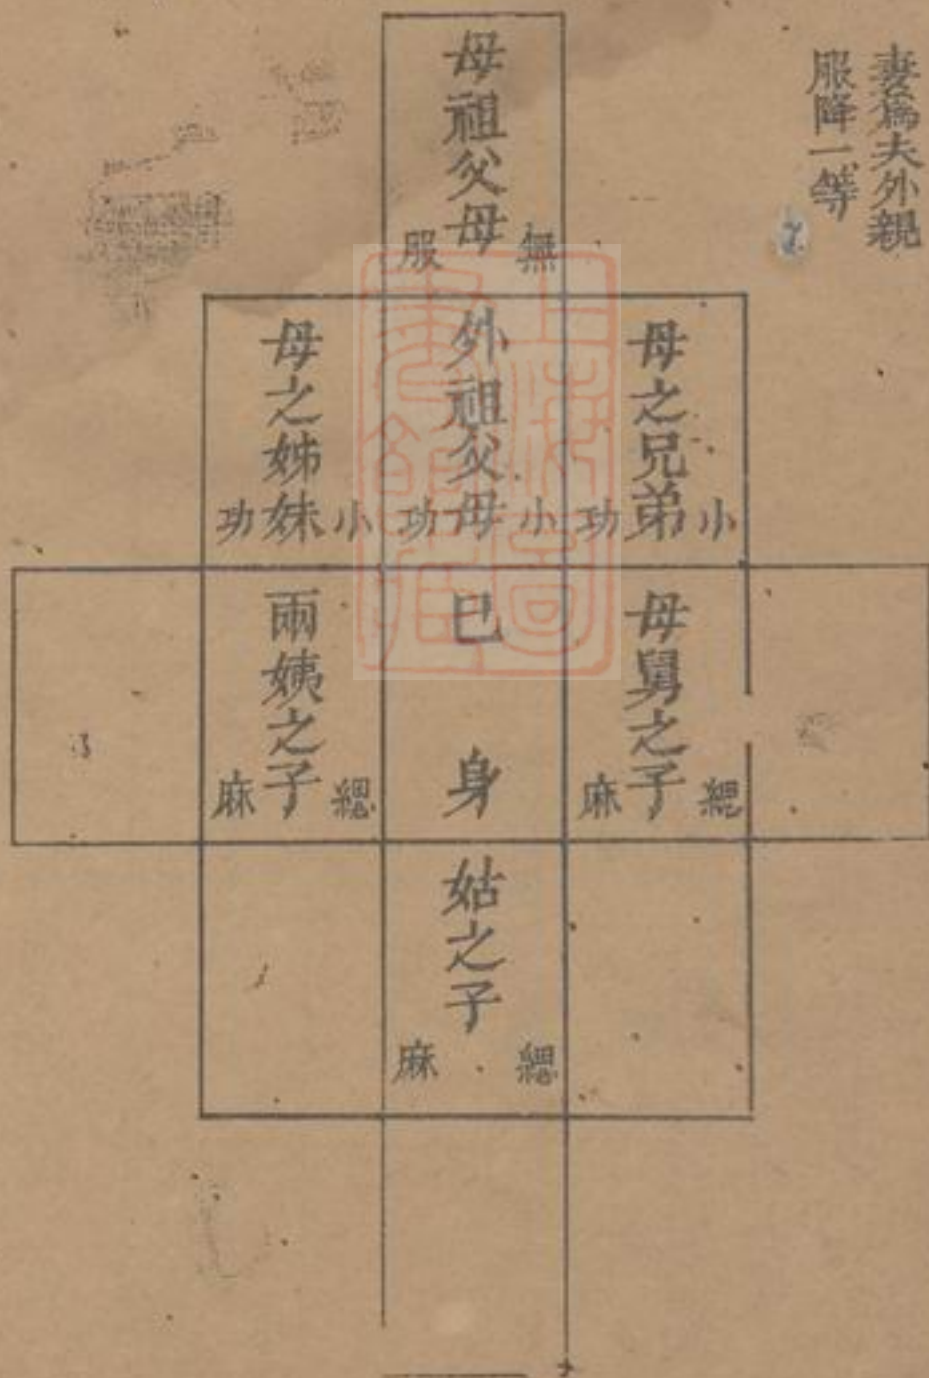 妻爲夫外親
服降一等
母祖父母
無服
母之兄弟
小功
外祖父母
小功
母之姊妹
小功
母舅之子
緦麻
已身
兩姨之子
緦麻
姑之子
緦麻
上海圖
書館藏